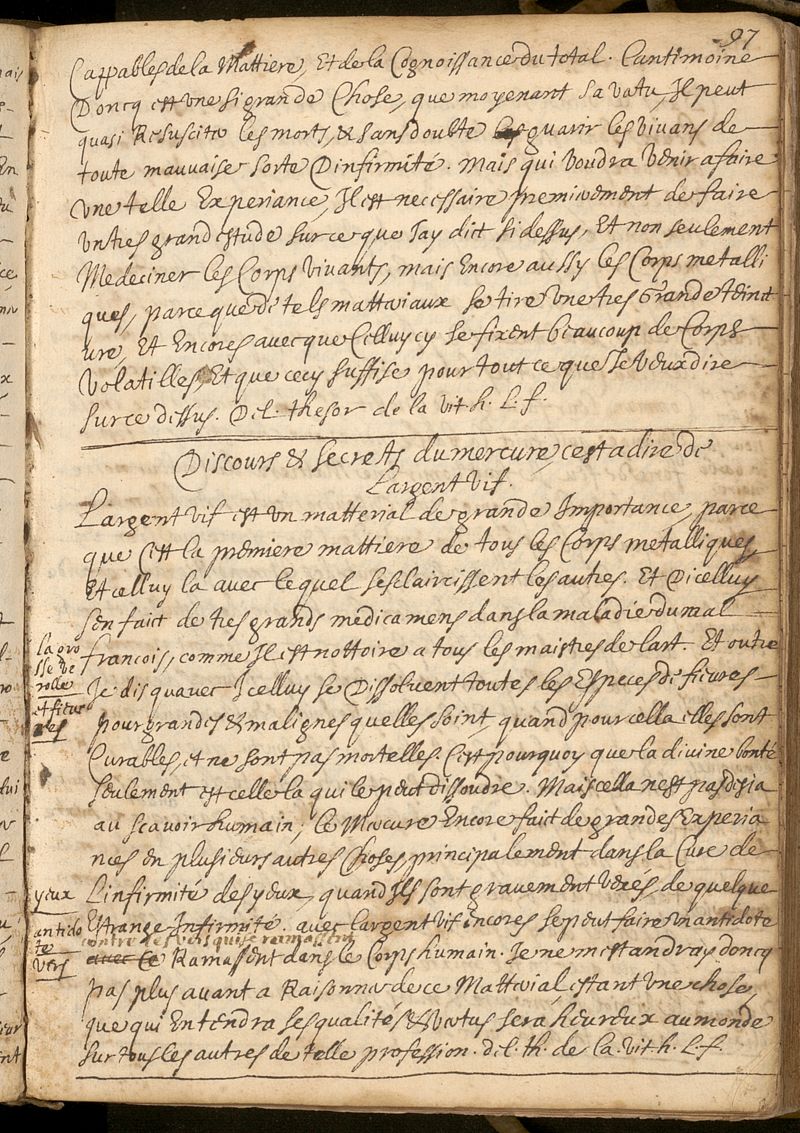 97
Cappables de la Mattiere, Et de la Cognoissance du total. Lantimoine
Doncq est une si grande Chose, que moyenant sa vatu, Il peut
quasi Resuscite les morts, & sans doubte guarir les vivans de
toute mauvaise sorte Dinfirmité. Mais qui voudra venir a faire
une telle Experiance, Il est necessaire premierement de faire
un tres grand estude sur ce que Jay dict si dessus, Et non seulement
Medeciner les Corps vivants, mais Encore aussy les Corps metalli
ques, parce que de tels mattaiaux se tire une tres Grande teinct
ure, Et Encores avecque Celluy cy se fixent beaucoup de Corps
volatilles, Et que cecy suffise pour tout ce que Je veux dire
sur ce dessus. Del. thesor de la vit. h. L. f.
Discours & secrets du mercure, cest a dire de
Largent vif.
Largent vif est un matterial de grande Importance, parce
que Cest la premiere mattiere de tous les Corps metalliques,
Et celluy la avec lequel sesclaircissent les autres. Et Dicelluy
sen faict de tres grands medicamens dans la maladie du mal
francois, comme Il est nottoire a tous les maistres de lart. Et outre
Je dis quavec Icelluy se Dissolvent toutes les Especes de fievres
pour grandes & malignes quelles soint, quand pour cella elles sont
Curables, et ne sont pas mortelles. Cest pourquoy que la divine bonté
seulement est celle la qui le peut dissoudre. Mais cella nest pas desia
au scavoir humain; le Mercure Encore faict de grandes Experia
nces en plusieurs autres Choses, principalement dans la Cure de
Linfirmité des yeux, quand Ils sont gravement vexés, de quelque
Estrange Infirmité. avec largent vif Encores se peut faire un antidote
contre les vers qui se ramassent
avec Ce Ramassent dans le Corps humain. Je ne mestandray doncq
pas plus avant a Raisonner de ce Matterial estant une chose,
que qui Entendra ses qualités & vertus sera heureux au monde
sur tous les autres de telle profession. del. th. de la. vit. h. L. f.
la gro
sse ve
rolle
et fiev
res
yeux
antido
te
vers